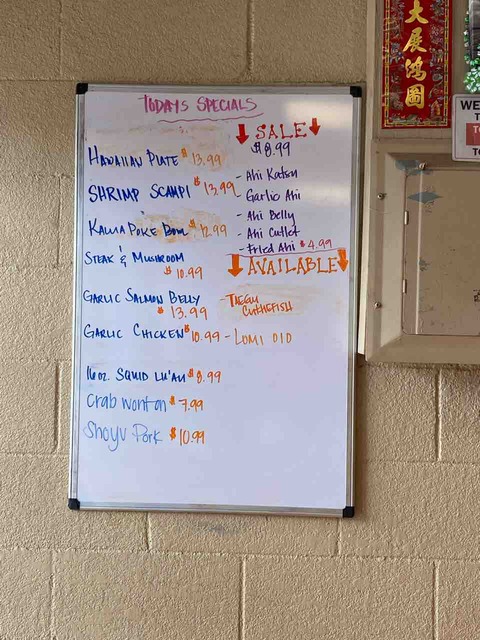 TODAYS SPECIALS
HAWAIIAN PLATE $13.99
SHRIMP SCAMPI $13.99
KALUA POKE BOWL $12.99
STEAK & MUSHROOM
$10.99
GARLIC SALMON BELLY
$13.99
GARLIC CHICKEN $10.99
16 oz. SQUID LU'AU $8.99
Crab wonton $7.99
Shoyu Pork $10.99
SALE
$8.99
- Ahi Katsu
- Garlic Ahi
- Ahi Belly
- Ahi Cutlet
- Fried Ahi $4.99
AVAILABLE
- TAEGU
CUTTLEFISH
- LOMI OIO
大展鸿圖
WE
T
TO
TO